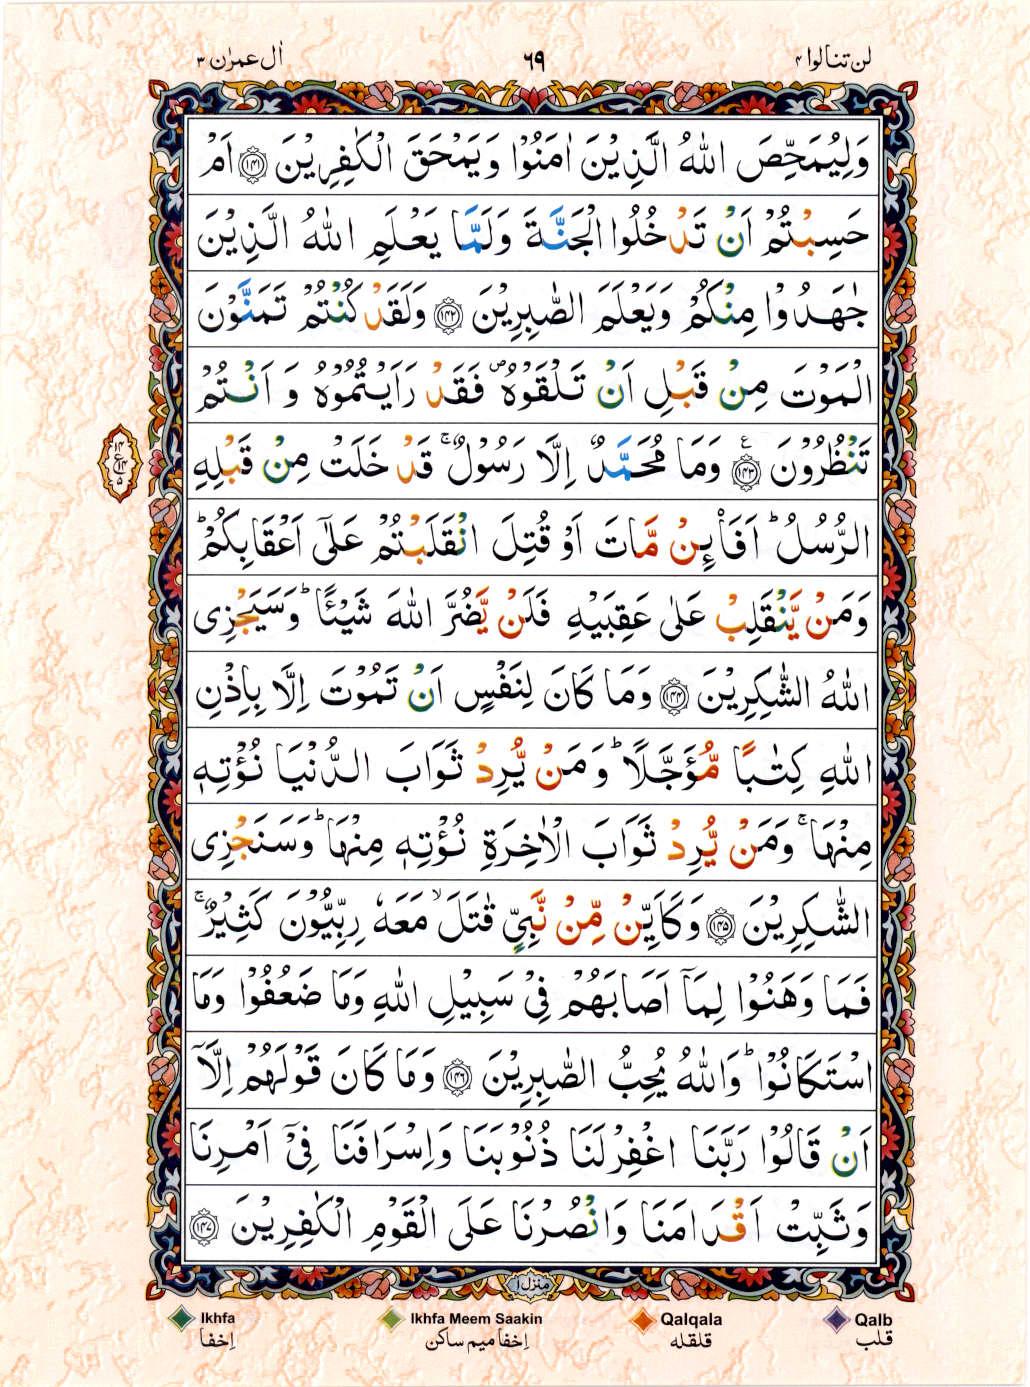 لن تنالوا ۴
٦٩
اٰل عمرٰن ۳
وَلِيُمَحِّصَ اللّٰهُ الَّذِيْنَ اٰمَنُوْا وَيَمْحَقَ الْكٰفِرِيْنَ ﴿۱۴۱﴾ اَمْ
حَسِبْتُمْ اَنْ تَدْخُلُوا الْجَنَّةَ وَلَمَّا يَعْلَمِ اللّٰهُ الَّذِيْنَ
جٰهَدُوْا مِنْكُمْ وَيَعْلَمَ الصّٰبِرِيْنَ ﴿۱۴۲﴾ وَلَقَدْ كُنْتُمْ تَمَنَّوْنَ
الْمَوْتَ مِنْ قَبْلِ اَنْ تَلْقَوْهُ ۪ فَقَدْ رَاَيْتُمُوْهُ وَ اَنْتُمْ
تَنْظُرُوْنَ ﴿۱۴۳﴾ ع وَمَا مُحَمَّدٌ اِلَّا رَسُوْلٌ ۚ قَدْ خَلَتْ مِنْ قَبْلِهِ
الرُّسُلُ ؕ اَفَا۟ىِٕنْ مَّاتَ اَوْ قُتِلَ انْقَلَبْتُمْ عَلٰٓى اَعْقَابِكُمْ ؕ
وَمَنْ يَّنْقَلِبْ عَلٰى عَقِبَيْهِ فَلَنْ يَّضُرَّ اللّٰهَ شَيْـًٔا ؕ وَسَيَجْزِى
اللّٰهُ الشّٰكِرِيْنَ ﴿۱۴۴﴾ وَمَا كَانَ لِنَفْسٍ اَنْ تَمُوْتَ اِلَّا بِاِذْنِ
اللّٰهِ كِتٰبًا مُّؤَجَّلًا ؕ وَمَنْ يُّرِدْ ثَوَابَ الدُّنْيَا نُؤْتِهٖ
مِنْهَا ۚ وَمَنْ يُّرِدْ ثَوَابَ الْاٰخِرَةِ نُؤْتِهٖ مِنْهَا ؕ وَسَنَجْزِى
الشّٰكِرِيْنَ ﴿۱۴۵﴾ وَكَاَيِّنْ مِّنْ نَّبِيٍّ قٰتَلَ ۙ مَعَهٗ رِبِّيُّوْنَ كَثِيْرٌ ۚ
فَمَا وَهَنُوْا لِمَاۤ اَصَابَهُمْ فِىْ سَبِيْلِ اللّٰهِ وَمَا ضَعُفُوْا وَمَا
اسْتَكَانُوْا ؕ وَاللّٰهُ يُحِبُّ الصّٰبِرِيْنَ ﴿۱۴۶﴾ وَمَا كَانَ قَوْلَهُمْ اِلَّاۤ
اَنْ قَالُوْا رَبَّنَا اغْفِرْ لَنَا ذُنُوْبَنَا وَاِسْرَافَنَا فِىْۤ اَمْرِنَا
وَثَبِّتْ اَقْدَامَنَا وَانْصُرْنَا عَلَى الْقَوْمِ الْكٰفِرِيْنَ ﴿۱۴۷﴾
منزل ۱
Ikhfa
اِخفا
Ikhfa Meem Saakin
اِخفا میم ساکن
Qalqala
قلقله
Qalb
قلب